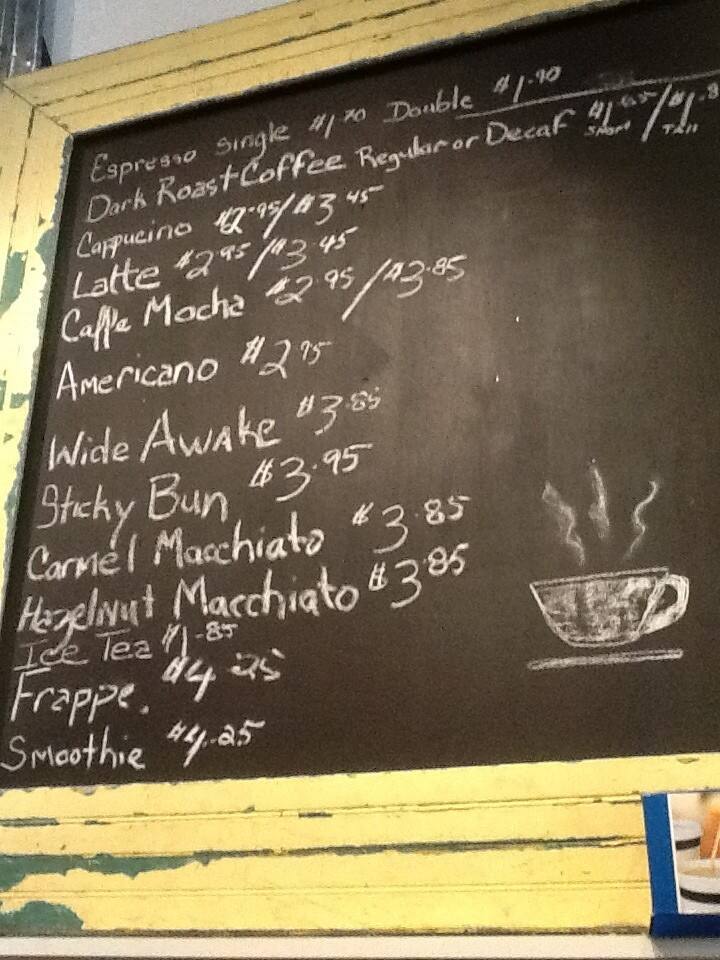 Espresso Single $1.70 Double $1.90
Dark Roast Coffee Regular or Decaf $1.65 / $1.8
Short Tall
Cappucino $2.95/$3.45
Latte $2.95/$3.45
Caffe Mocha $2.95/$3.85
Americano $2.95
Wide Awake $3.85
Sticky Bun $3.95
Carmel Macchiato $3.85
Hazelnut Macchiato $3.85
Ice Tea $1.85
Frappe. $4.25
Smoothie $4.25